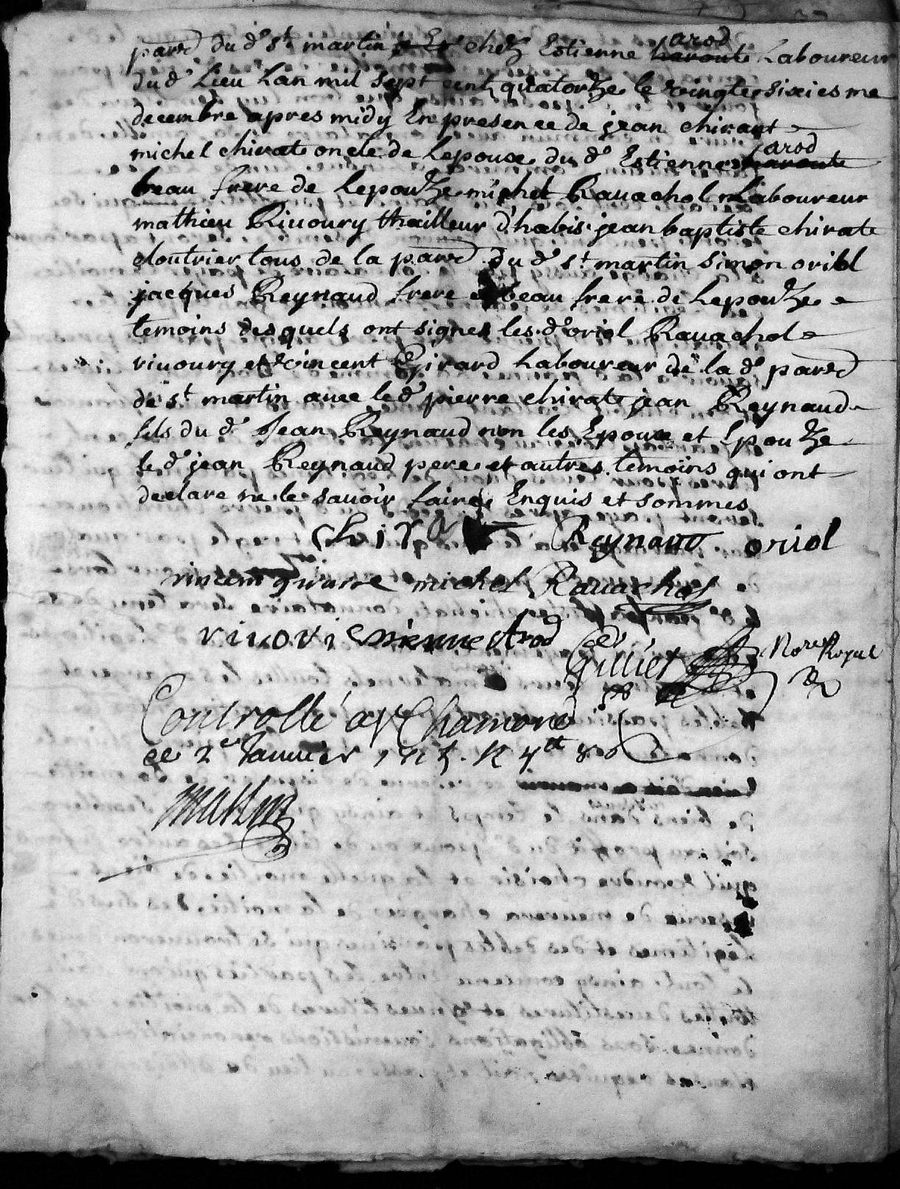 parse du d' st martin chez Estienne arod Laboureur
du d' Lieu Lan mil sept cent quatorze le vingtesixiesme
decembre apres midy En presence de jean chirat
michel chirat oncle de Lepoux du d' Estienne arod
beau frere de Lepouze michel Ravachol Laboureur
mathieu Rivoury thailleur d'habis jean baptiste chirat
cloutrier tous de la parse du d' st martin simon oriol
jacques Reynaud frere et beau frere de Lepouze
temoins desquels ont signes les d' oriol Ravachol
rivoury et vincent Girard Laboureur de la d' parse
de st martin avec le d' pierre chirat jean Reynaud
fils du d' Jean Reynaud non les Epoux et Epouze
le d' jean Reynaud pere et autres temoins qui ont
declare ne le savoir faire Enquis et sommes
Reynaud oriol
michel Ravachol
rivori Estienne Arod
Gilliet Nore Royal
Controllé a st Chamond
ce 2e Janvier 1715